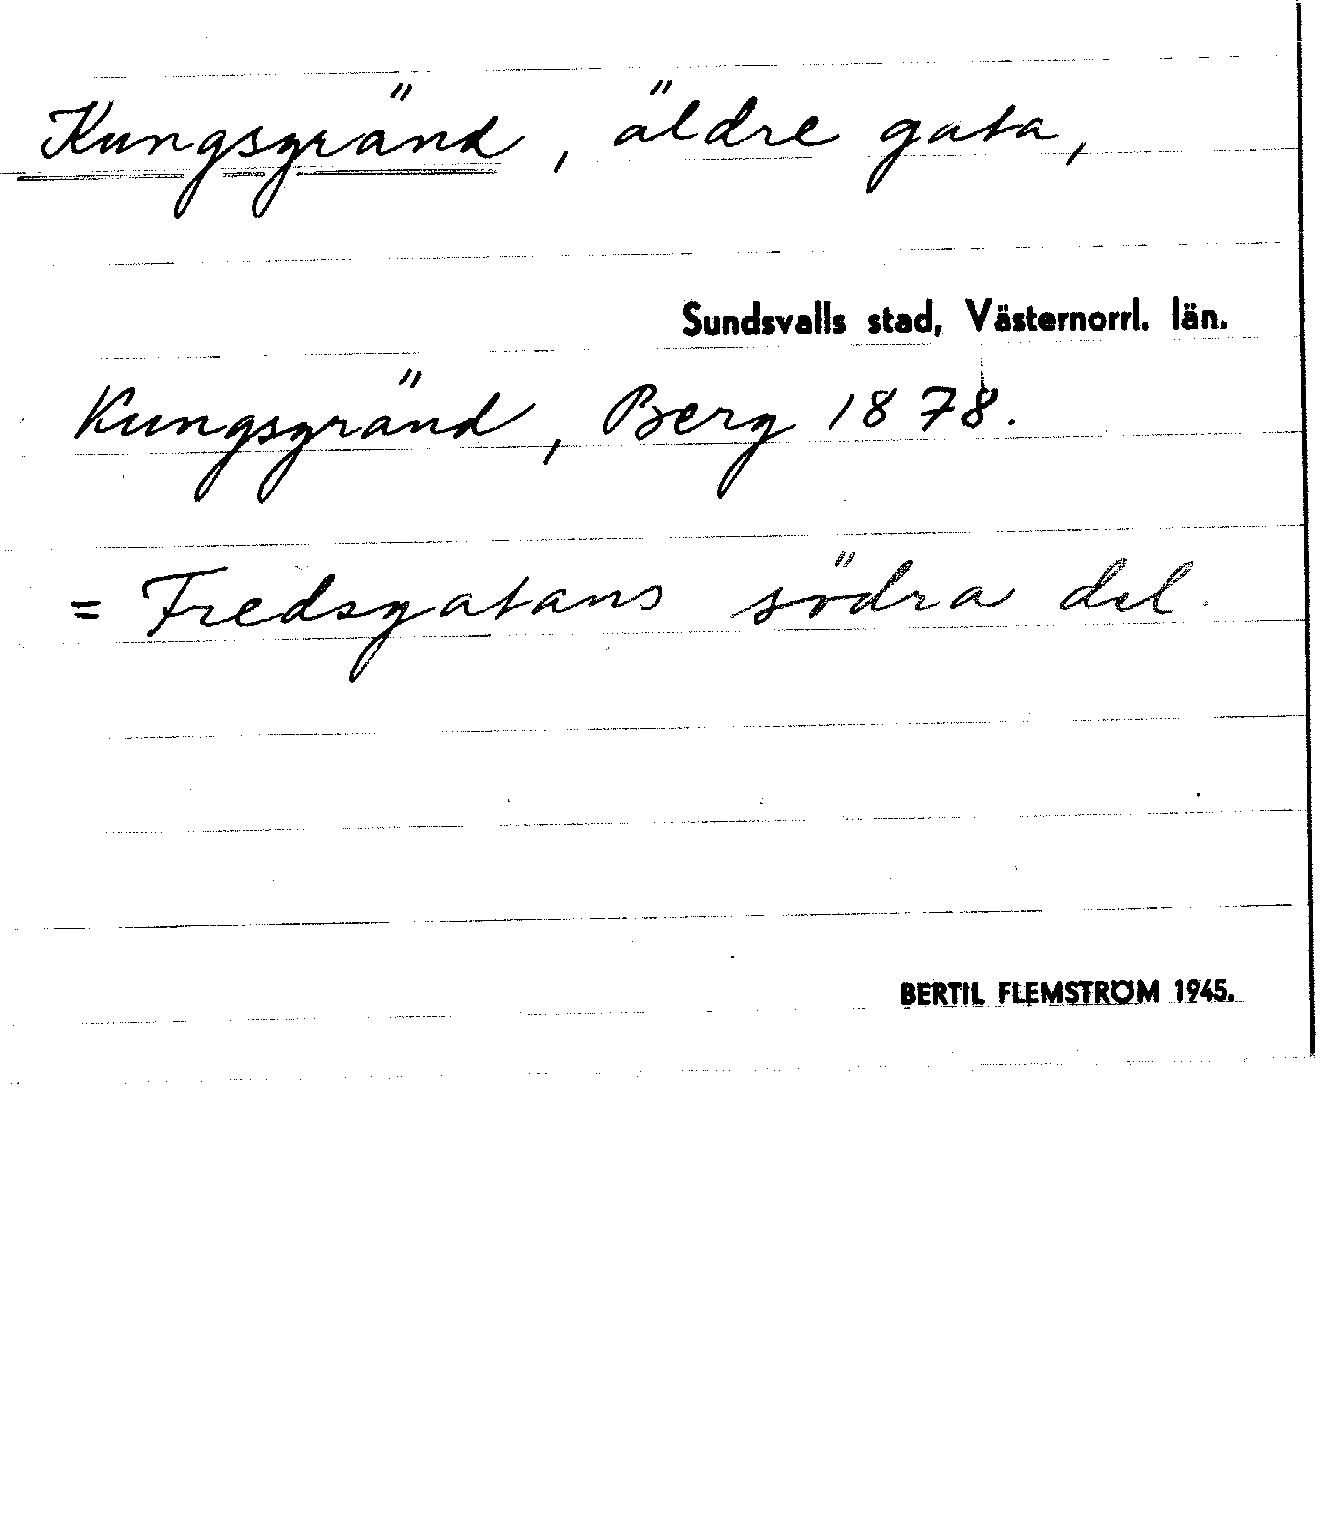 Kungsgränd, äldre gata,
Sundsvalls stad, Västernorrl. län.
Kungsgränd, Berg 1878.
= Fredsgatans södra del.
BERTIL FLEMSTRÖM 1945.